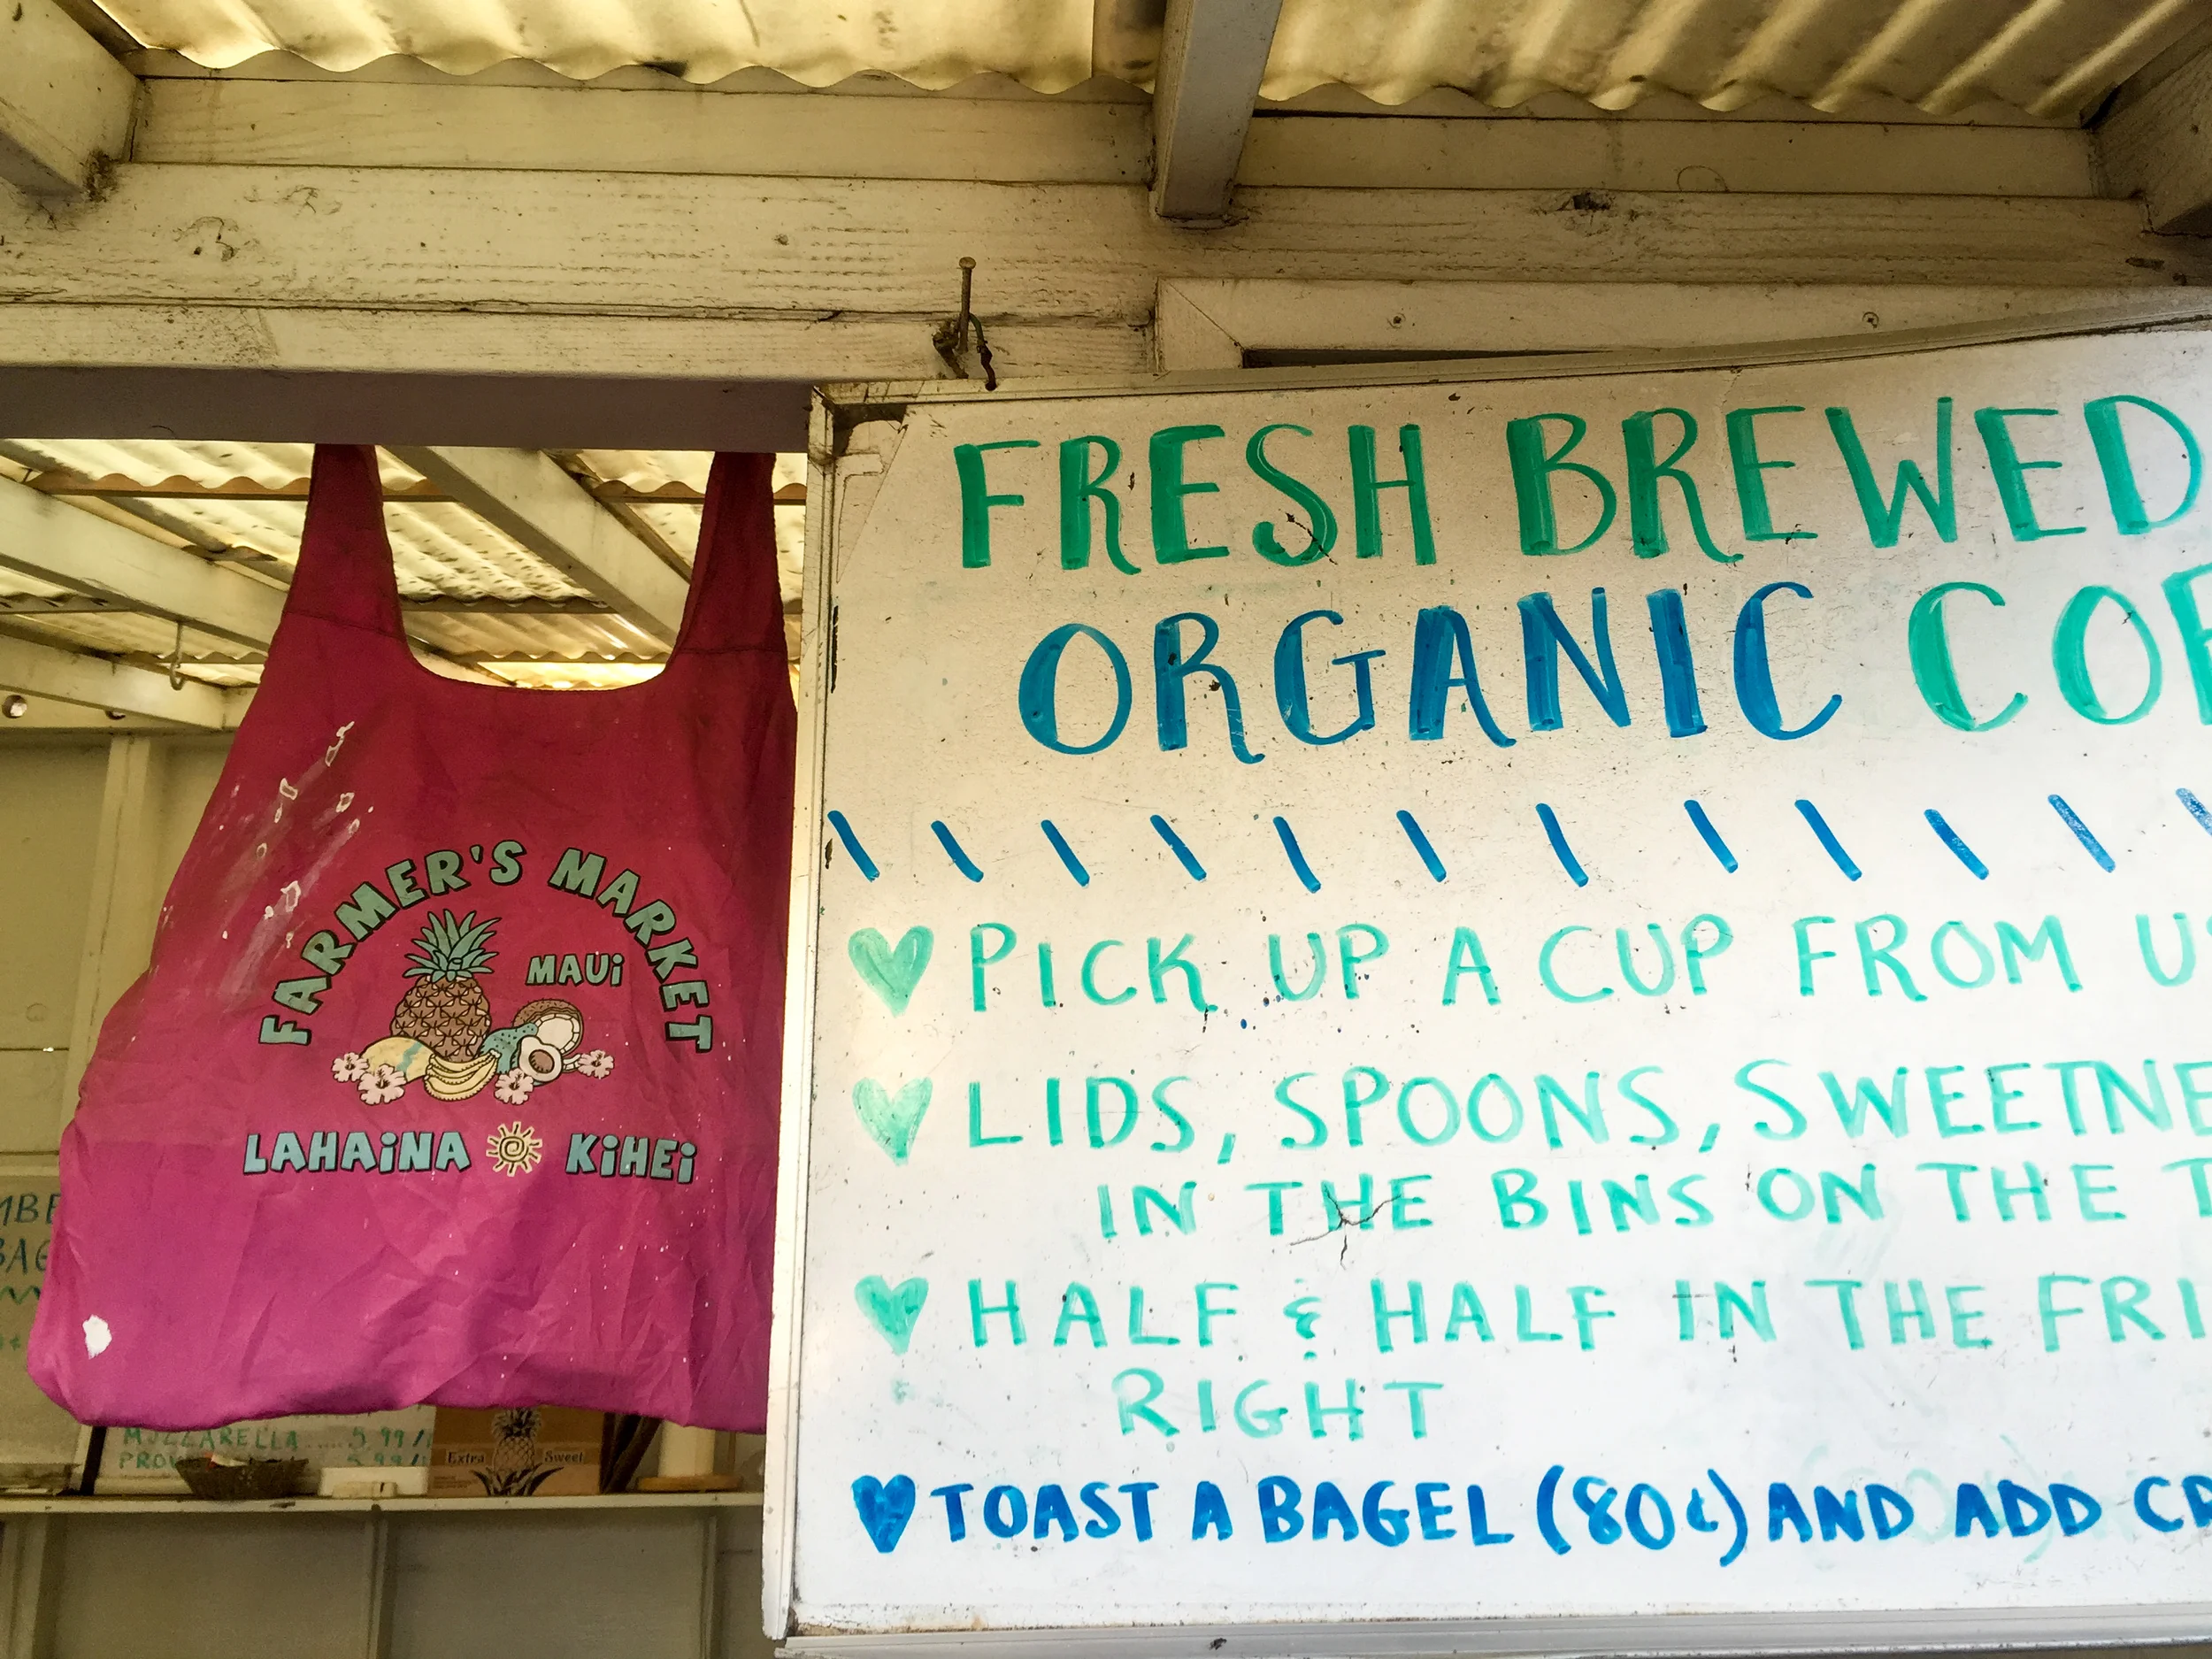 FARMER'S MARKET
MAUi
LAHAiNA KiHEi
FRESH BREWED
ORGANIC COF
PICK UP A CUP FROM US
LIDS, SPOONS, SWEETNE
IN THE BINS ON THE T
HALF & HALF IN THE FRI
RIGHT
TOAST A BAGEL (80¢) AND ADD CR
MBE
BAG
MOZZARELLA ..... 5.99/
PROV 5.99/
Extra Sweet